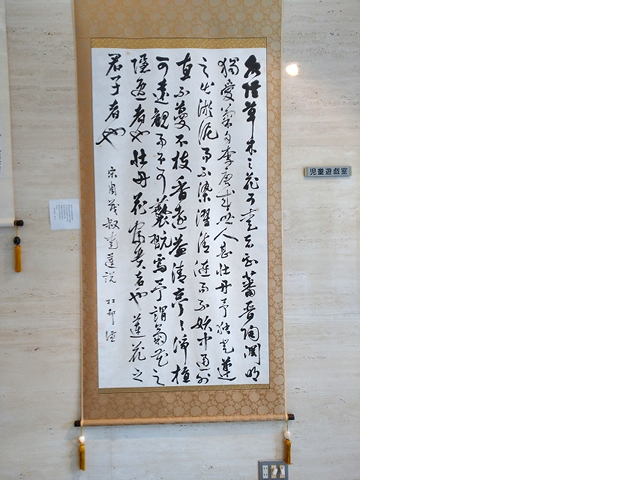 水陸草木之花可愛者甚蕃晉陶淵明
獨愛菊自李唐來世人甚牡丹予独愛蓮
之出淤泥而不染濯清漣而不妖中通外
直不蔓不枝香遠益清亭々淨植
可遠観而不可褻翫焉予謂菊花之
隱逸者也牡丹花富貴者也蓮花之
君子者也
宋周茂叔愛蓮説
児童遊戯室